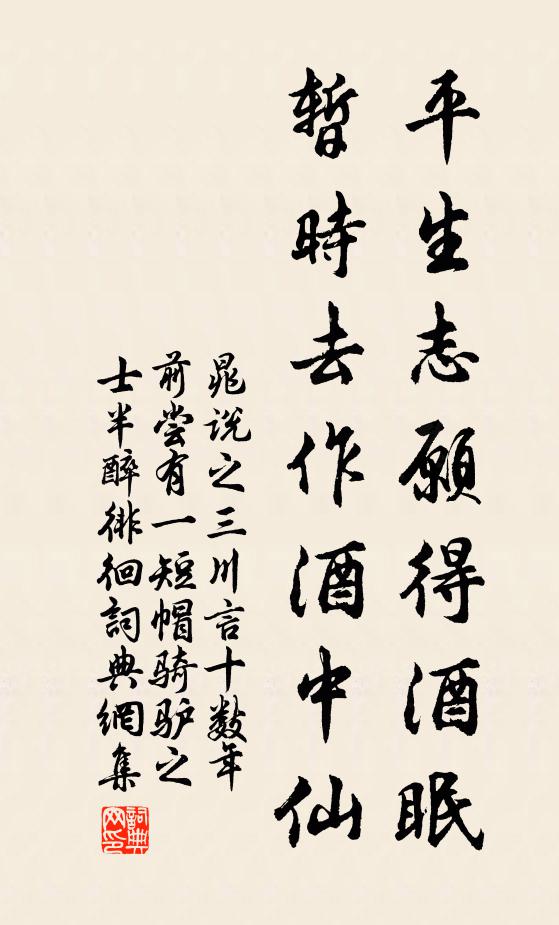 平生志願得酒眠
暫時去作酒中仙
晁說之三川言十数年
前尝有一短帽騎驴之
士半醉徘徊詞典網集
詞典网印